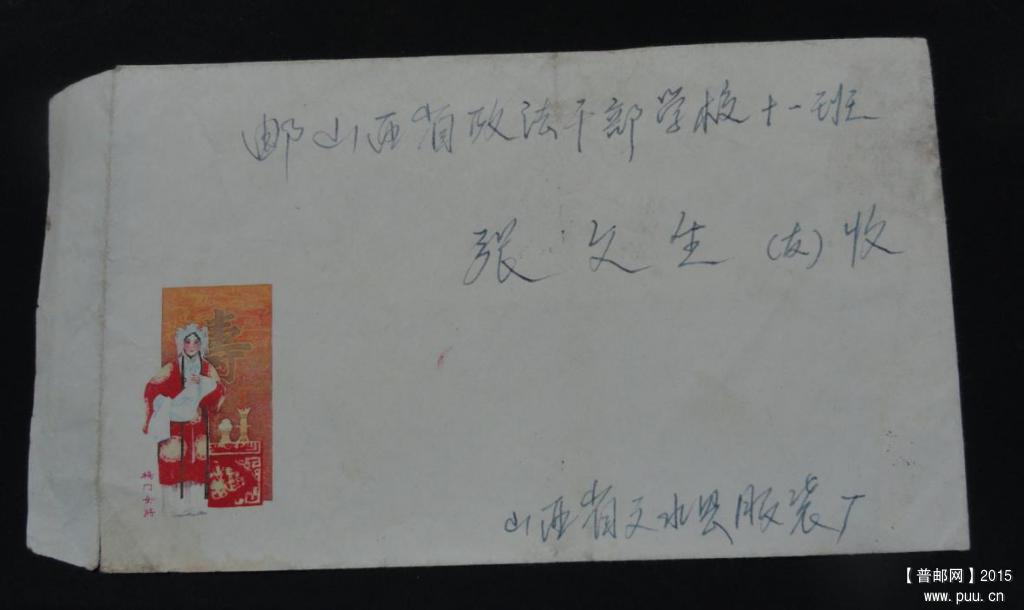 邮山西省政法干部学校十一班
张文生(友)收
寿
杨门女将
山西省文水县服装厂
【普邮网】2015
www.puu.cn